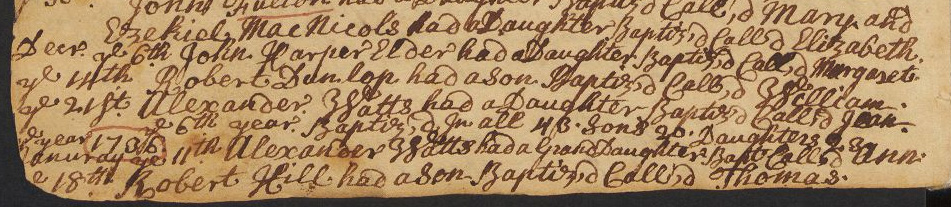 John Fulton had a Daughter Baptiz,d Call,d Mary and
Ezekiel MacNicols had a Daughter Baptiz,d Call,d Elizabeth.
Decr. ye 6th John Harper Elder had a Daughter Baptiz,d Call,d Margaret
ye 14th Robert Dunlop had a son Baptiz,d Call,d William.
ye 21st. Alexander Watts had a Daughter Baptiz,d Call,d Jean.
ye 6th year. Baptiz,d In all 43. Sons 20. Daughters 23
ye year 1736
Januray ye 11th Alexander Watts had a Grand Daughter Bapt. Call,d Ann:
18th Robert Hill had a son Baptiz,d Call,d Thomas.